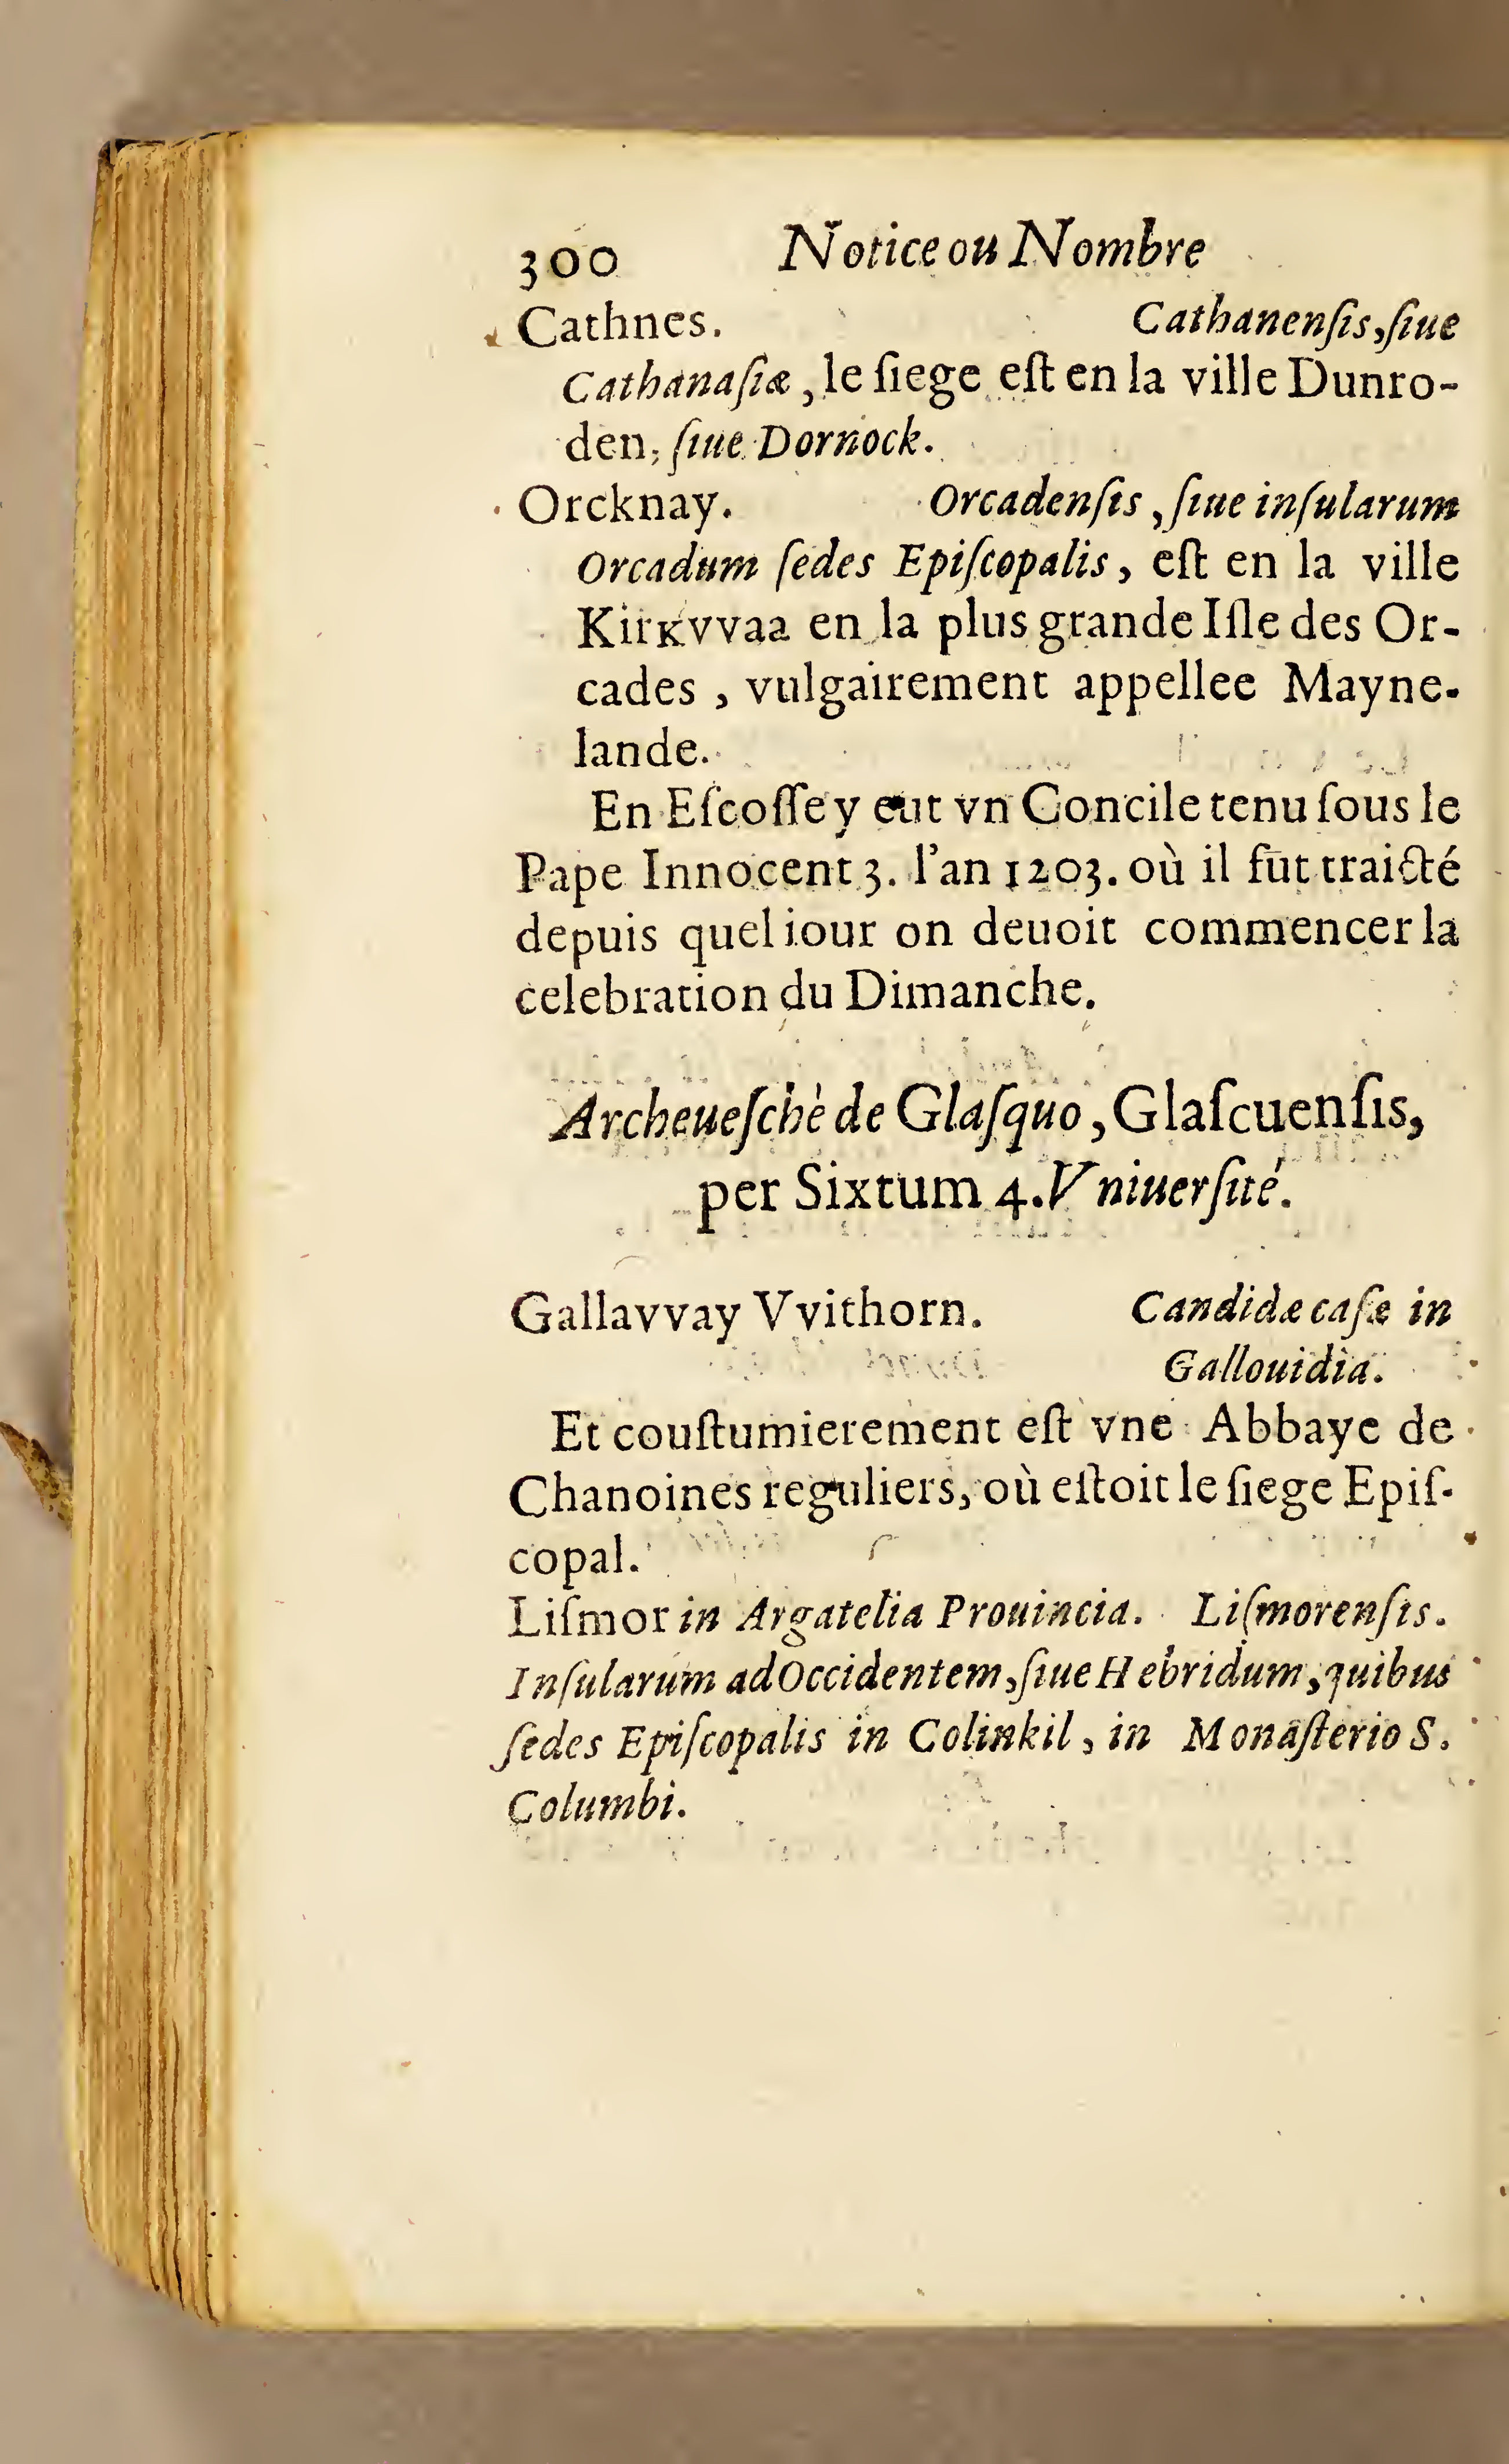 300 Notice ou Nombre
Cathnes. Cathanenſis, ſiue
Cathanaſiæ, le ſiege eſt en la ville Dunro-
den, ſiue Dornock.
Orcknay. Orcadenſis, ſiue inſularum
Orcadum ſedes Epiſcopalis, eſt en la ville
Kirĸvvaa en la plus grande Iſle des Or-
cades, vulgairement appellee Mayne-
lande.
En Eſcoſſe y eut vn Concile tenu ſous le
Pape Innocent 3. l'an 1203. où il fut traicté
depuis quel iour on deuoit commencer la
celebration du Dimanche.
Archeueſché de Glaſquo, Glaſcuenſis,
per Sixtum 4. Vniuerſité.
Gallavvay Vvithorn. Candidæ caſæ in
Gallouidia.
Et couſtumierement eſt vne Abbaye de
Chanoines reguliers, où eſtoit le ſiege Epiſ-
copal.
Liſmor in Argatelia Prouincia. Liſmorenſis.
Inſularum ad Occidentem, ſiue Hebridum, quibus
ſedes Epiſcopalis in Colinkil, in Monaſterio S.
Columbi.